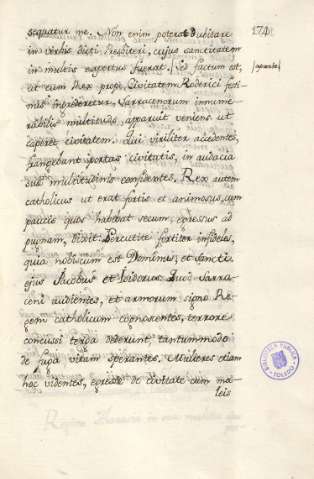 sequatur me. Non enim poterat dubitare
in verbis dicti Presbiteri, cujus sanctitatem
in multis expertus fuerat, sed factum est,
ut cum Rex prope Civitatem Roderici festi-
nus ingrederetur, Sarracenorum innume-
rabilis multitudo, apparuit veniens ut
caperet civitatem. Qui viriliter accedentes,
frangebant portas civitatis, in audacia
suæ multitudinis confidentes. Rex autem
catholicus ut erat fortis et animosus, cum
paucis quos habebat secum, egressus ad
pugnam, dixit: Percutite fortiter infideles,
quia nobiscum est Dominus, et Sancti
ejus Jacobus et Isidorus. Quod Sarra-
ceni audientes, et armorum signo Re-
gem catholicum cognoscentes, terrore
concussi terga dederunt, tantummodo
de fuga vitam sperantes. Mulieres etiam
hoc videntes, egresse de civitate cum ma-
leis
174
BIBLIOTECA PUBLICA
TOLEDO